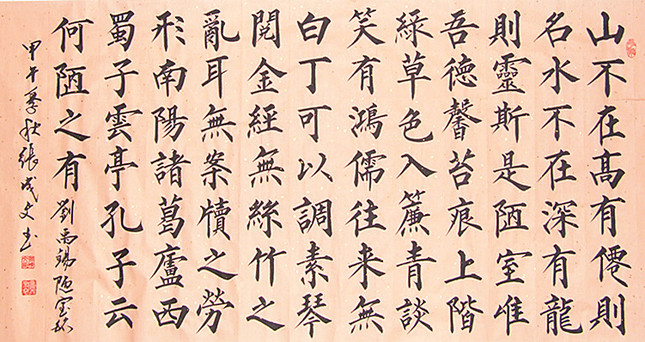 山不在高有僊則
名水不在深有龍
則靈斯是陋室唯
吾德馨苔痕上階
綠草色入簾青談
笑有鴻儒往来無
白丁可以調素琴
閱金經無絲竹之
亂耳無案牘之勞
形南陽諸葛廬西
蜀子雲亭孔子云
何陋之有 劉禹錫陋室銘
甲午季秋張成文书